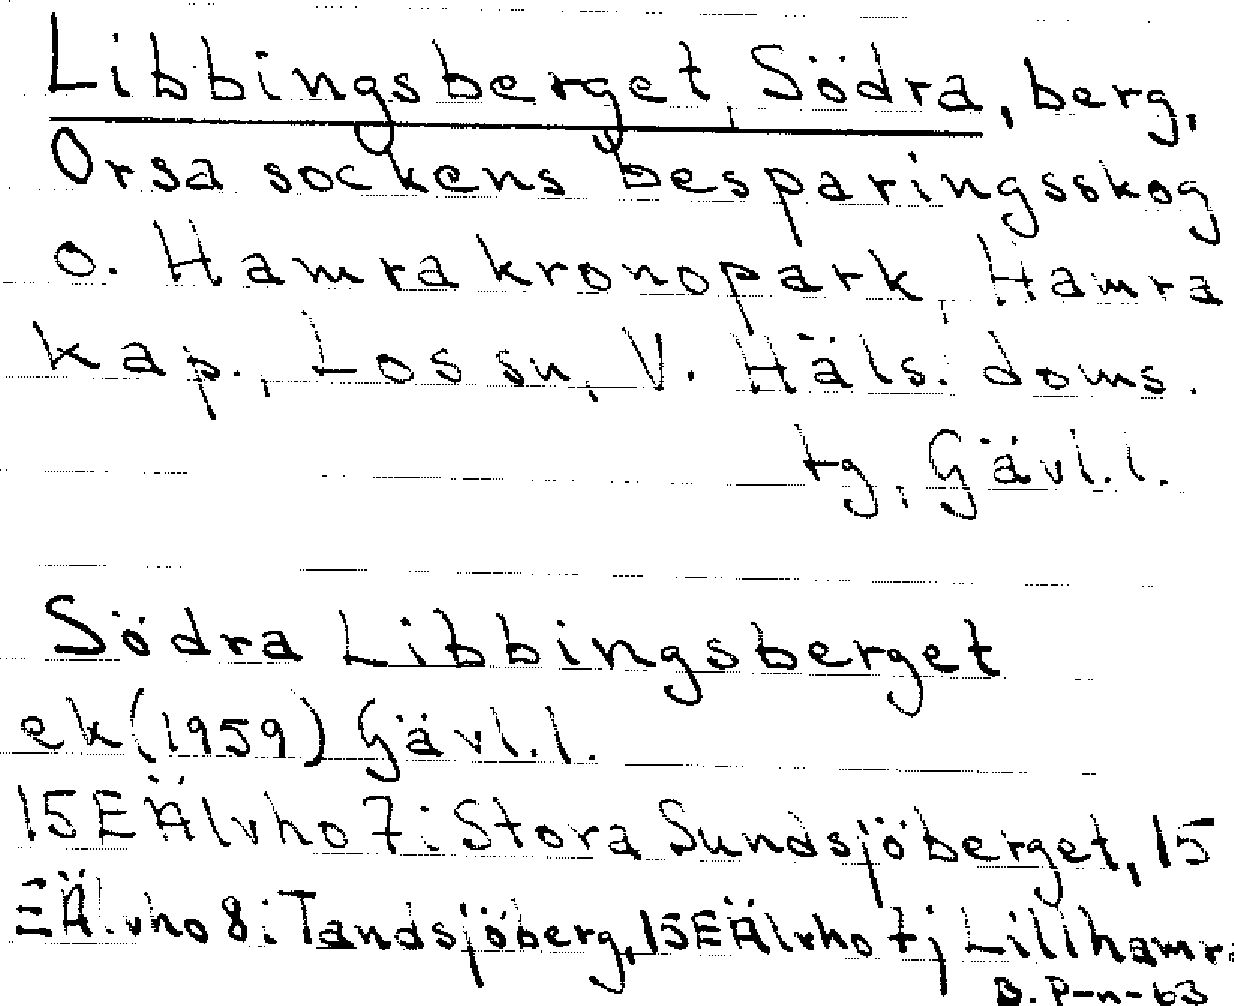 Libbingsberget, Södra, berg,
Orsa sockens besparingsskog
o. Hamra kronopark, Hamra
kap., Los sn, V. Häls. doms.
tg, Gävl.l.
Södra Libbingsberget
ek (1959) Gävl.l.
15EÄlvho 7: Stora Sundsjöberget, 15
EÄlvho 8: Tandsjöberg, 15EÄlvho 7j Lillhamra
B. P-n-63